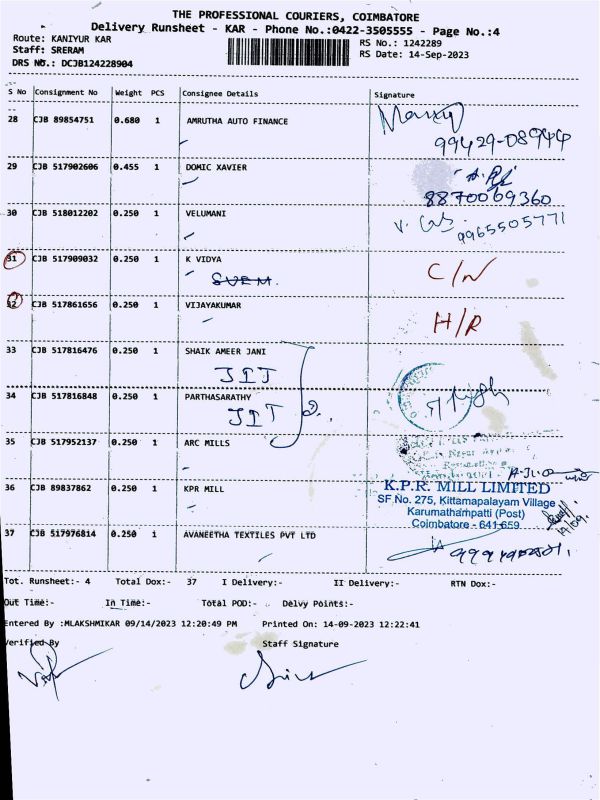 THE PROFESSIONAL COURIERS, COIMBATORE
Delivery Runsheet - KAR - Phone No.:0422-3505555 - Page No.:4
Route: KANIYUR KAR
RS No.: 1242289
Staff: SRERAM
RS Date: 14-Sep-2023
DRS NO.: DCJB124228904
S No Consignment No Weight PCS Consignee Details Signature
28 CJB 89854751 0.680 1 AMRUTHA AUTO FINANCE
99429-08944
29 CJB 517902606 0.455 1 DOMIC XAVIER
8870069360
30 CJB 518012202 0.250 1 VELUMANI
9965505771
31 CJB 517909032 0.250 1 K VIDYA C/N
32 CJB 517861656 0.250 1 VIJAYAKUMAR H/R
33 CJB 517816476 0.250 1 SHAIK AMEER JANI
JIT
34 CJB 517816848 0.250 1 PARTHASARATHY
JIT
35 CJB 517952137 0.250 1 ARC MILLS
36 CJB 89837862 0.250 1 KPR MILL
K.P.R. MILL LIMITED
SF.No. 275, Kittamapalayam Village
Karumathampatti (Post)
Coimbatore - 641 659
37 CJB 517976814 0.250 1 AVANEETHA TEXTILES PVT LTD
Tot. Runsheet:- 4 Total Dox:- 37 I Delivery:- II Delivery:- RTN Dox:-
Out Time:- In Time:- Total POD:- Delvy Points:-
Entered By :MLAKSHMIKAR 09/14/2023 12:20:49 PM Printed On: 14-09-2023 12:22:41
Verified By Staff Signature